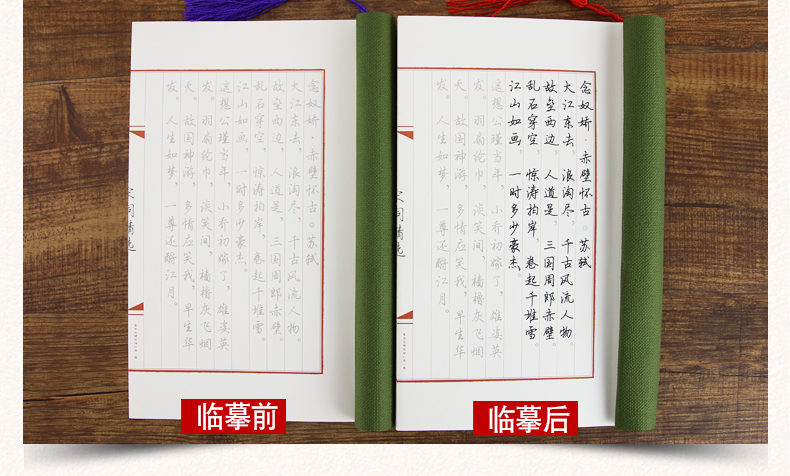 念奴娇·赤壁怀古。苏轼
大江东去，浪淘尽，千古风流人物。
故垒西边，人道是，三国周郎赤壁。
乱石穿空，惊涛拍岸，卷起千堆雪。
江山如画，一时多少豪杰。
遥想公瑾当年，小乔初嫁了，雄姿英
发。羽扇纶巾，谈笑间，樯橹灰飞烟
灭。故国神游，多情应笑我，早生华
发。人生如梦，一尊还酹江月。
宋词精选
临摹前
念奴娇·赤壁怀古。苏轼
大江东去，浪淘尽，千古风流人物。
故垒西边，人道是，三国周郎赤壁。
乱石穿空，惊涛拍岸，卷起千堆雪。
江山如画，一时多少豪杰。
遥想公瑾当年，小乔初嫁了，雄姿英
发。羽扇纶巾，谈笑间，樯橹灰飞烟
灭。故国神游，多情应笑我，早生华
发。人生如梦，一尊还酹江月。
宋词精选
临摹后